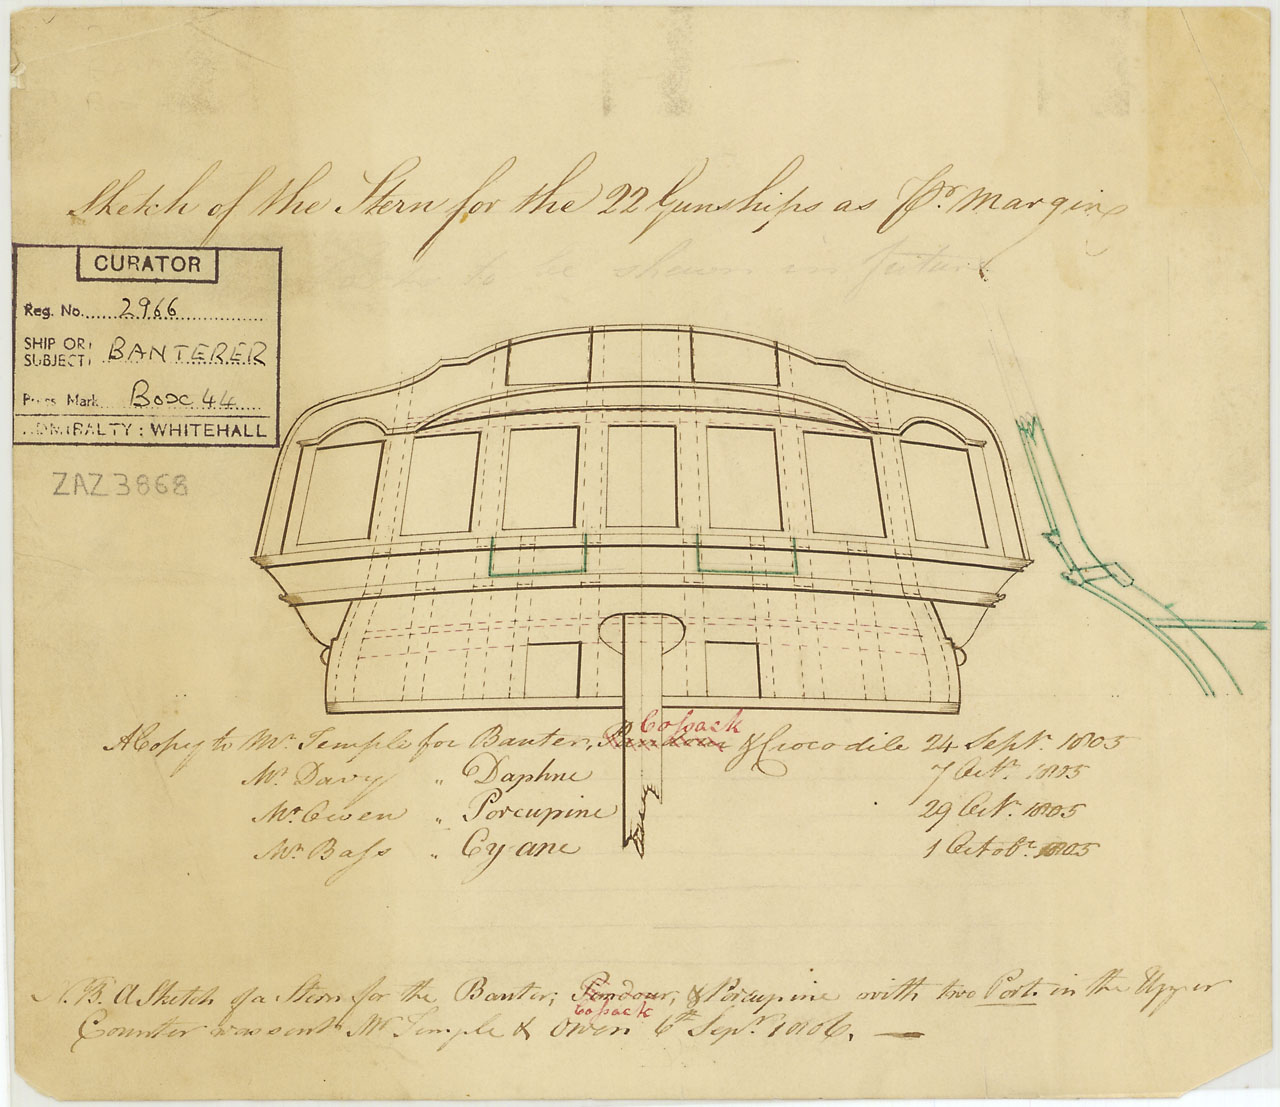 Sketch of the Stern for the 22 Gunships as Pr. Margin
to be shewn in future
CURATOR
Reg. No. 2966
SHIP OR SUBJECT: BANTERER
Press Mark Box 44
ADMIRALTY: WHITEHALL
ZAZ3868
Cossack
A Copy to Mr. Temple for Banter, Pandour & Crocodile 24 Sept. 1805
Mr. Davy " Daphne 7 Octr. 1805
Mr. Owen " Porcupine 29 Oct. 1805
Mr. Bass " Cyane 1 Octobr. 1805
N.B. A Sketch of a Stern for the Banter, Pandour, & Porcupine with two Ports in the Upper
Cossack
Counter was sent Mr. Temple & Owen 6th Sepr. 1806. —